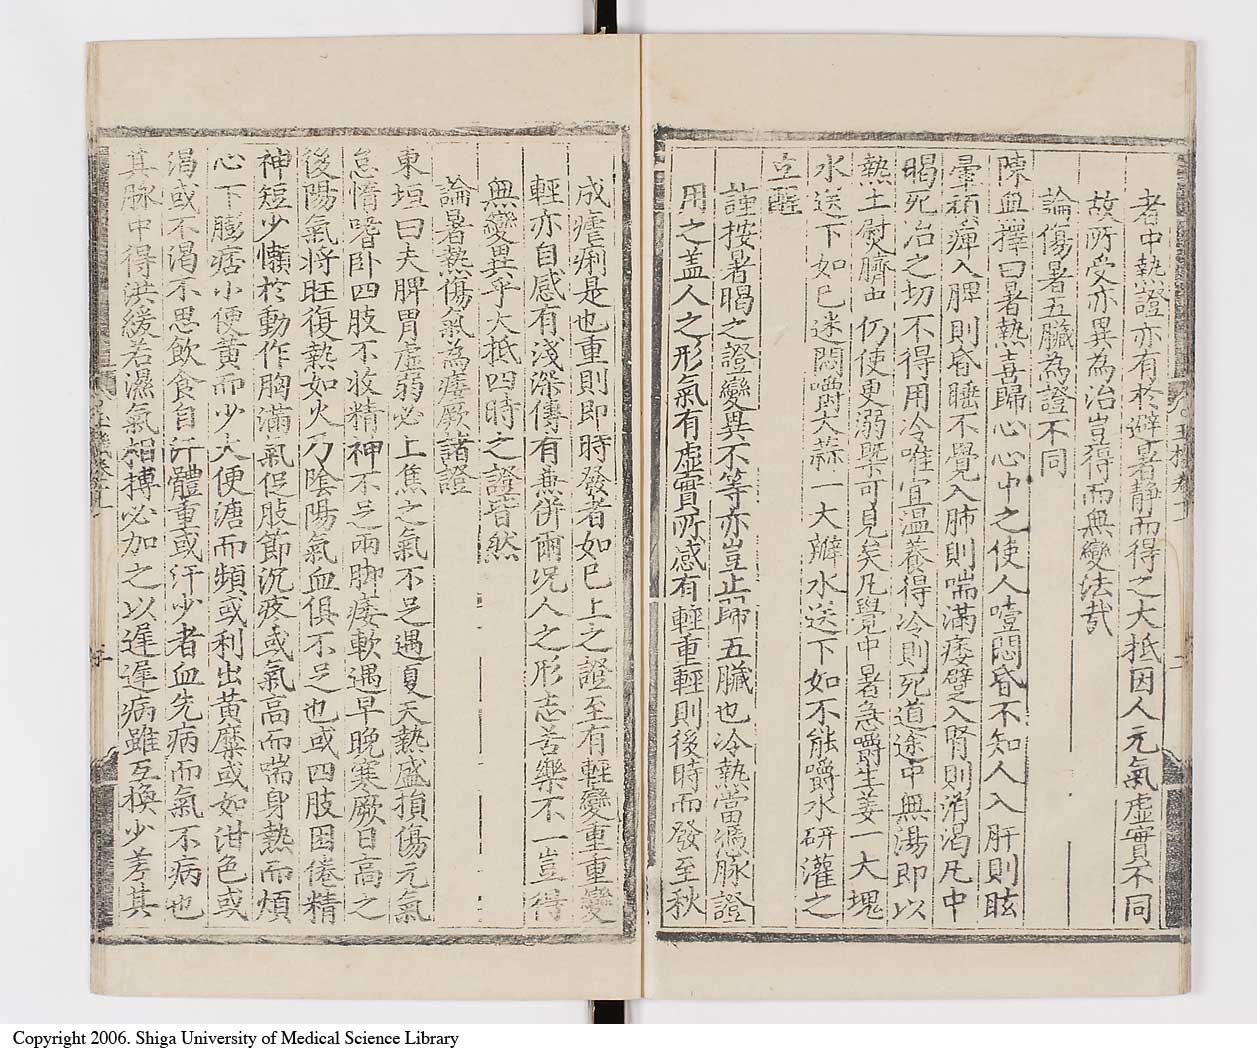 者中熱證亦有於避暑靜而得之大抵因人元氣虛實不同
故所受亦異為治豈得而無變法哉
論傷暑五臟為證不同
陳無擇曰暑熱喜歸心心中之使人噎悶昏不知人入肝則眩
暈頑痺入脾則昏睡不覺入肺則喘滿痿躄入腎則消渴凡中
暍死治之切不得用冷唯宜溫養得冷則死道途中無湯即以
熱土熨臍中仍使更溺槩可見矣凡覺中暑急嚼生姜一大塊
水送下如已迷悶嚼大蒜一大瓣水送下如不能嚼水研灌之
立醒
謹按暑暍之證變異不等亦豈止歸五臟也冷熱當慿脉證
用之盖人之形氣有虛實所感有輕重輕則後時而發至秋
成瘧痢是也重則即時發者如已上之證至有輕變重重變
輕亦自感有淺深傳有兼併爾况人之形志苦樂不一豈得
無變異乎大抵四時之證皆然
論暑熱傷氣為痿厥諸證
東垣曰夫脾胃虛弱必上焦之氣不足遇夏天熱盛損傷元氣
怠惰嗜卧四肢不收精神不足兩脚痿軟遇早晚寒厥日高之
後陽氣將旺復熱如火乃陰陽氣血俱不足也或四肢困倦精
神短少懶於動作胸滿氣促肢節沉疼或氣高而喘身熱而煩
心下膨痞小便黃而少大便溏而頻或利出黃糜或如泔色或
渴或不渴不思飲食自汗體重或汗少者血先病而氣不病也
其脉中得洪緩若濕氣相搏必加之以遲遲病雖互換少差其
Copyright 2006. Shiga University of Medical Science Library